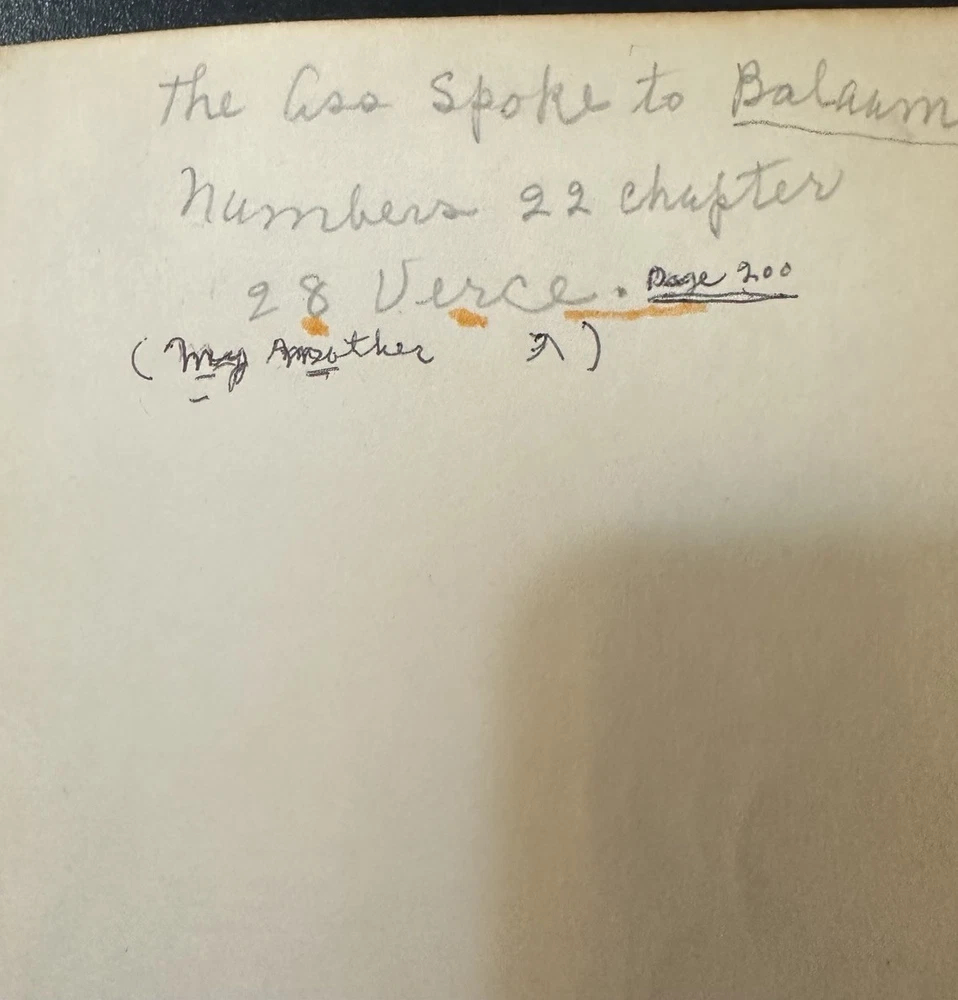 The Ass Spoke to Balaam
Numbers 22 chapter
28 Verce. Page 200
(My